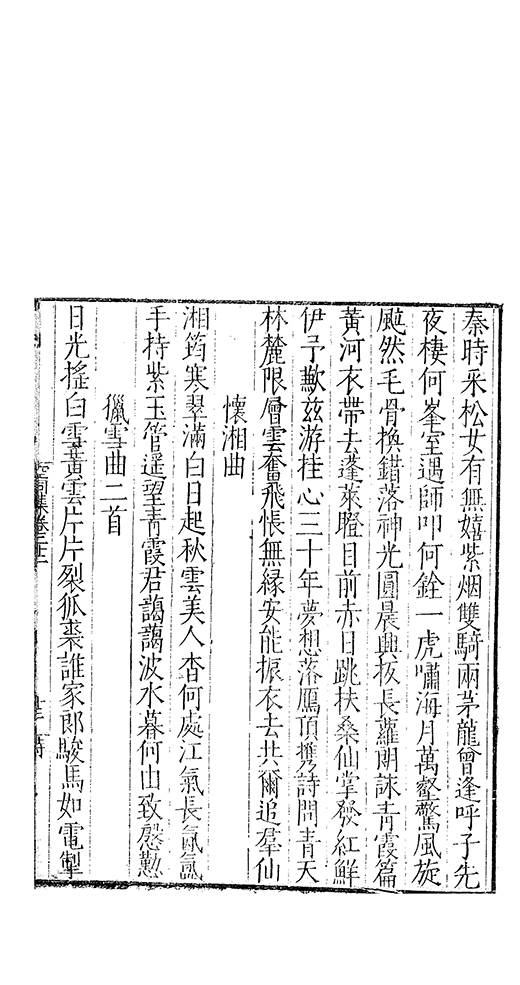 秦時采松女有無嬉紫烟雙騎兩茅龍會逢呼子先
夜棲何峯室遇師叩何銓一虎嘯海月萬壑驚風旋
颩然毛骨換錯落神光圓晨興扳長蘿朗誄青霞篇
黃河衣帶去蓬萊瞪目前赤日跳扶桑仙掌發紅鮮
伊予歎茲游挂心三十年夢想落鴈頂攜詩問青天
林麓限層雲奮飛悵無緣安能振衣去共爾追羣仙
懷湘曲
湘筠寒翠滿白日起秋雲美人杳何處江氣長氤氳
手持紫玉管遥望青霞君藹藹波水暮何由致慇懃
獵雪曲二首
日光搖白雪黃雲片片裂狐裘誰家郎駿馬如電掣
空同集卷